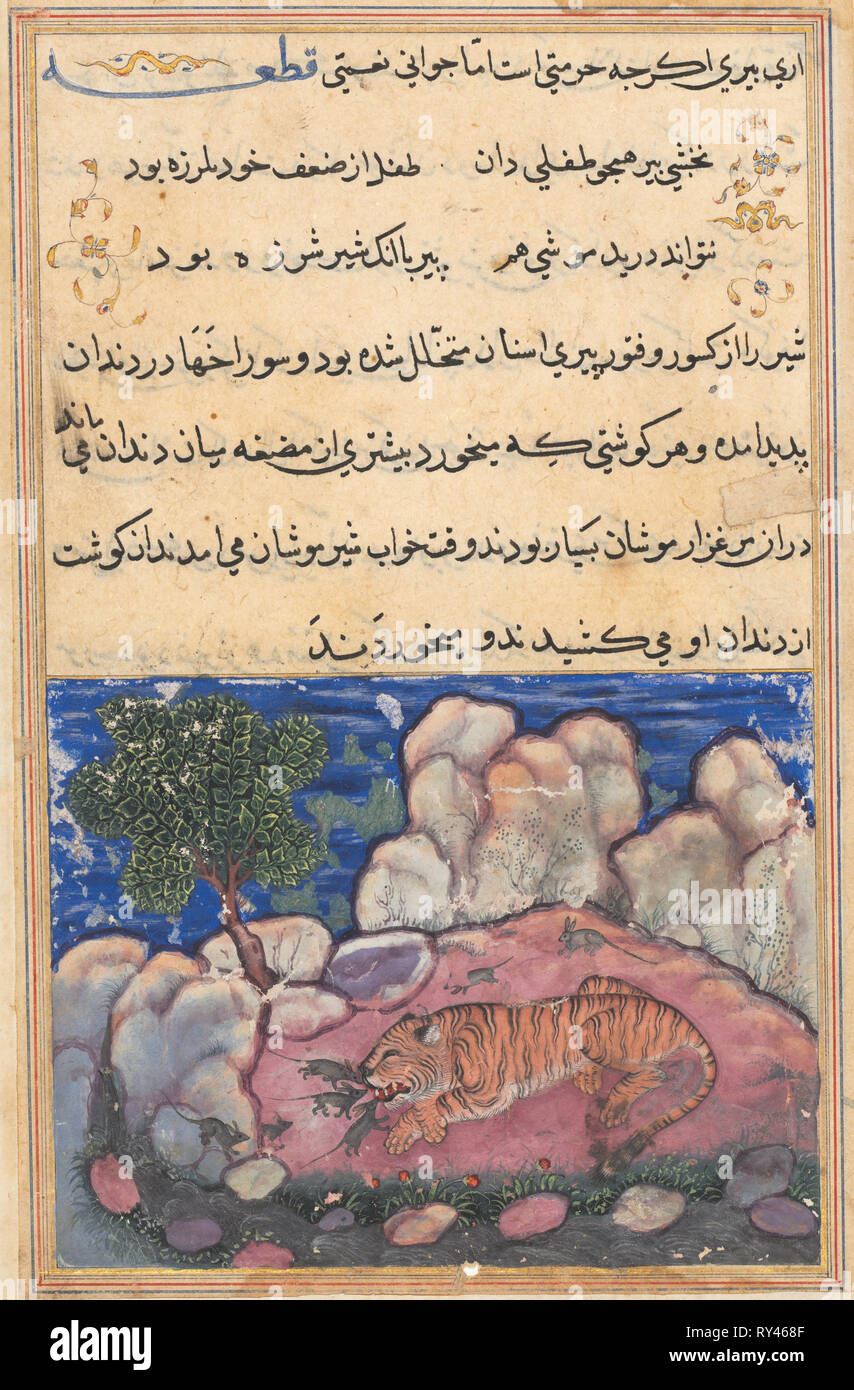 اری بیری اکرجه حرمتی است امّا جوانی نعمتی قطعه
نخشبی بیر همجو طفلی دان طفل از ضعف خود بلرزه بود
نتواند درید موشی هم پیر با انک شیر شرزه بود
شیر را از کسور و فتور پیری اسنان متخلّل شده بود و سوراخها در دندان
پدید امده و هر کوشتی که میخورد بیشتری از مضغه میان دندان می ماند
دران مرغزار موشان بسیار بودند وقت خواب شیر موشان می امدند ان کوشت
از دندان او می کشیدند و میخوردند
alamy
Image ID: RY468F
www.alamy.com